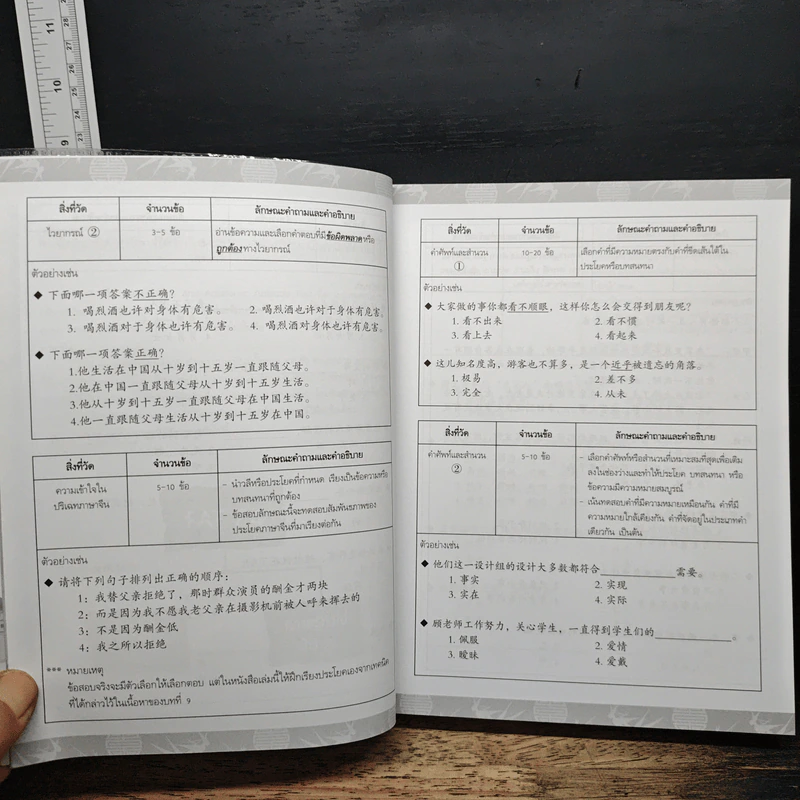 11
28
27
26
10
25
24
9
23
สิ่งที่วัด จำนวนข้อ ลักษณะคำถามและคำอธิบาย
ไวยากรณ์ ② 3-5 ข้อ อ่านข้อความและเลือกคำตอบที่มีข้อผิดพลาดหรือ
ถูกต้องทางไวยากรณ์
ตัวอย่างเช่น
◆ 下面哪一项答案不正确?
1. 喝烈酒也许对身体有危害。 2. 喝烈酒也许对于身体有危害。
3. 喝烈酒对于身体也许有危害。 4. 喝烈酒对身体也许有危害。
◆ 下面哪一项答案正确?
1.他生活在中国从十岁到十五岁一直跟随父母。
2.他在中国一直跟随父母从十岁到十五岁生活。
3.他从十岁到十五岁一直跟随父母生活在中国。
4.他一直跟随父母生活从十岁到十五岁在中国。
สิ่งที่วัด จำนวนข้อ ลักษณะคำถามและคำอธิบาย
ความเข้าใจใน 5-10 ข้อ - นำวลีหรือประโยคที่กำหนด เรียงเป็นข้อความหรือ
ปริเฉทภาษาจีน บทสนทนาที่ถูกต้อง
- ข้อสอบลักษณะนี้จะทดสอบสัมพันธภาพของ
ประโยคภาษาจีนที่มาเรียงต่อกัน
ตัวอย่างเช่น
◆ 请将下列句子排列出正确的顺序:
1: 我替父亲拒绝了,那时群众演员的酬金才两块
2: 而是因为我不愿我老父亲在摄影机前被人呼来挥去的
3: 不是因为酬金低
4: 我之所以拒绝
*** หมายเหตุ
ข้อสอบจริงจะมีตัวเลือกให้เลือกตอบ แต่ในหนังสือเล่มนี้ให้ฝึกเรียงประโยคเองจากเทคนิค
ที่ได้กล่าวไว้ในเนื้อหาของบทที่ 9
สิ่งที่วัด จำนวนข้อ ลักษณะคำถามและคำอธิบาย
คำศัพท์และสำนวน 10-20 ข้อ เลือกคำที่มีความหมายตรงกับคำที่ขีดเส้นใต้ใน
① ประโยคหรือบทสนทนา
ตัวอย่างเช่น
◆ 大家做的事你都看不顺眼,这样你怎么会交得到朋友呢?
1. 看不出来 2. 看不惯
3. 看上去 4. 看起来
◆ 这儿知名度高,游客也不算多,是一个近乎被遗忘的角落。
1. 极易 2. 差不多
3. 完全 4. 从来
สิ่งที่วัด จำนวนข้อ ลักษณะคำถามและคำอธิบาย
คำศัพท์และสำนวน 5-10 ข้อ - เลือกคำศัพท์หรือสำนวนที่เหมาะสมที่สุดเพื่อเติม
② ลงในช่องว่างและทำให้ประโยค บทสนทนา หรือ
ข้อความมีความหมายสมบูรณ์
- เน้นทดสอบคำที่มีความหมายเหมือนกัน คำที่มี
ความหมายใกล้เคียงกัน คำที่จัดอยู่ในประเภทคำ
เดียวกัน เป็นต้น
ตัวอย่างเช่น
◆ 他们这一设计组的设计大多数都符合____________需要。
1. 事实 2. 实现
3. 实在 4. 实际
◆ 顾老师工作努力,关心学生,一直得到学生们的____________。
1. 佩服 2. 爱情
3. 暧昧 4. 爱戴